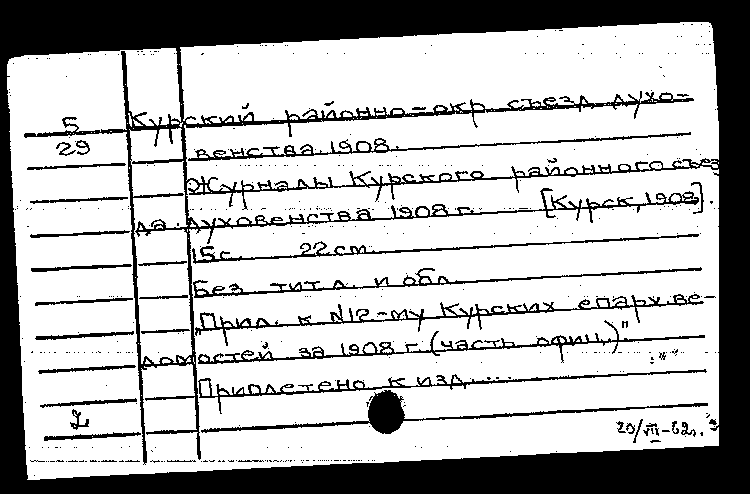 5 Курский районно-окр. съезд духо-
29 венства. 1908.
Журналы Курского районного съез
да духовенства 1908 г. - [Курск, 1908].
15 с. 22 см.
Без тит. л. и обл.
"Прил. к №12-му Курских епарх. ве-
домостей за 1908 г. (часть офиц.)"
Приплетено к изд. ...
20/VII-62